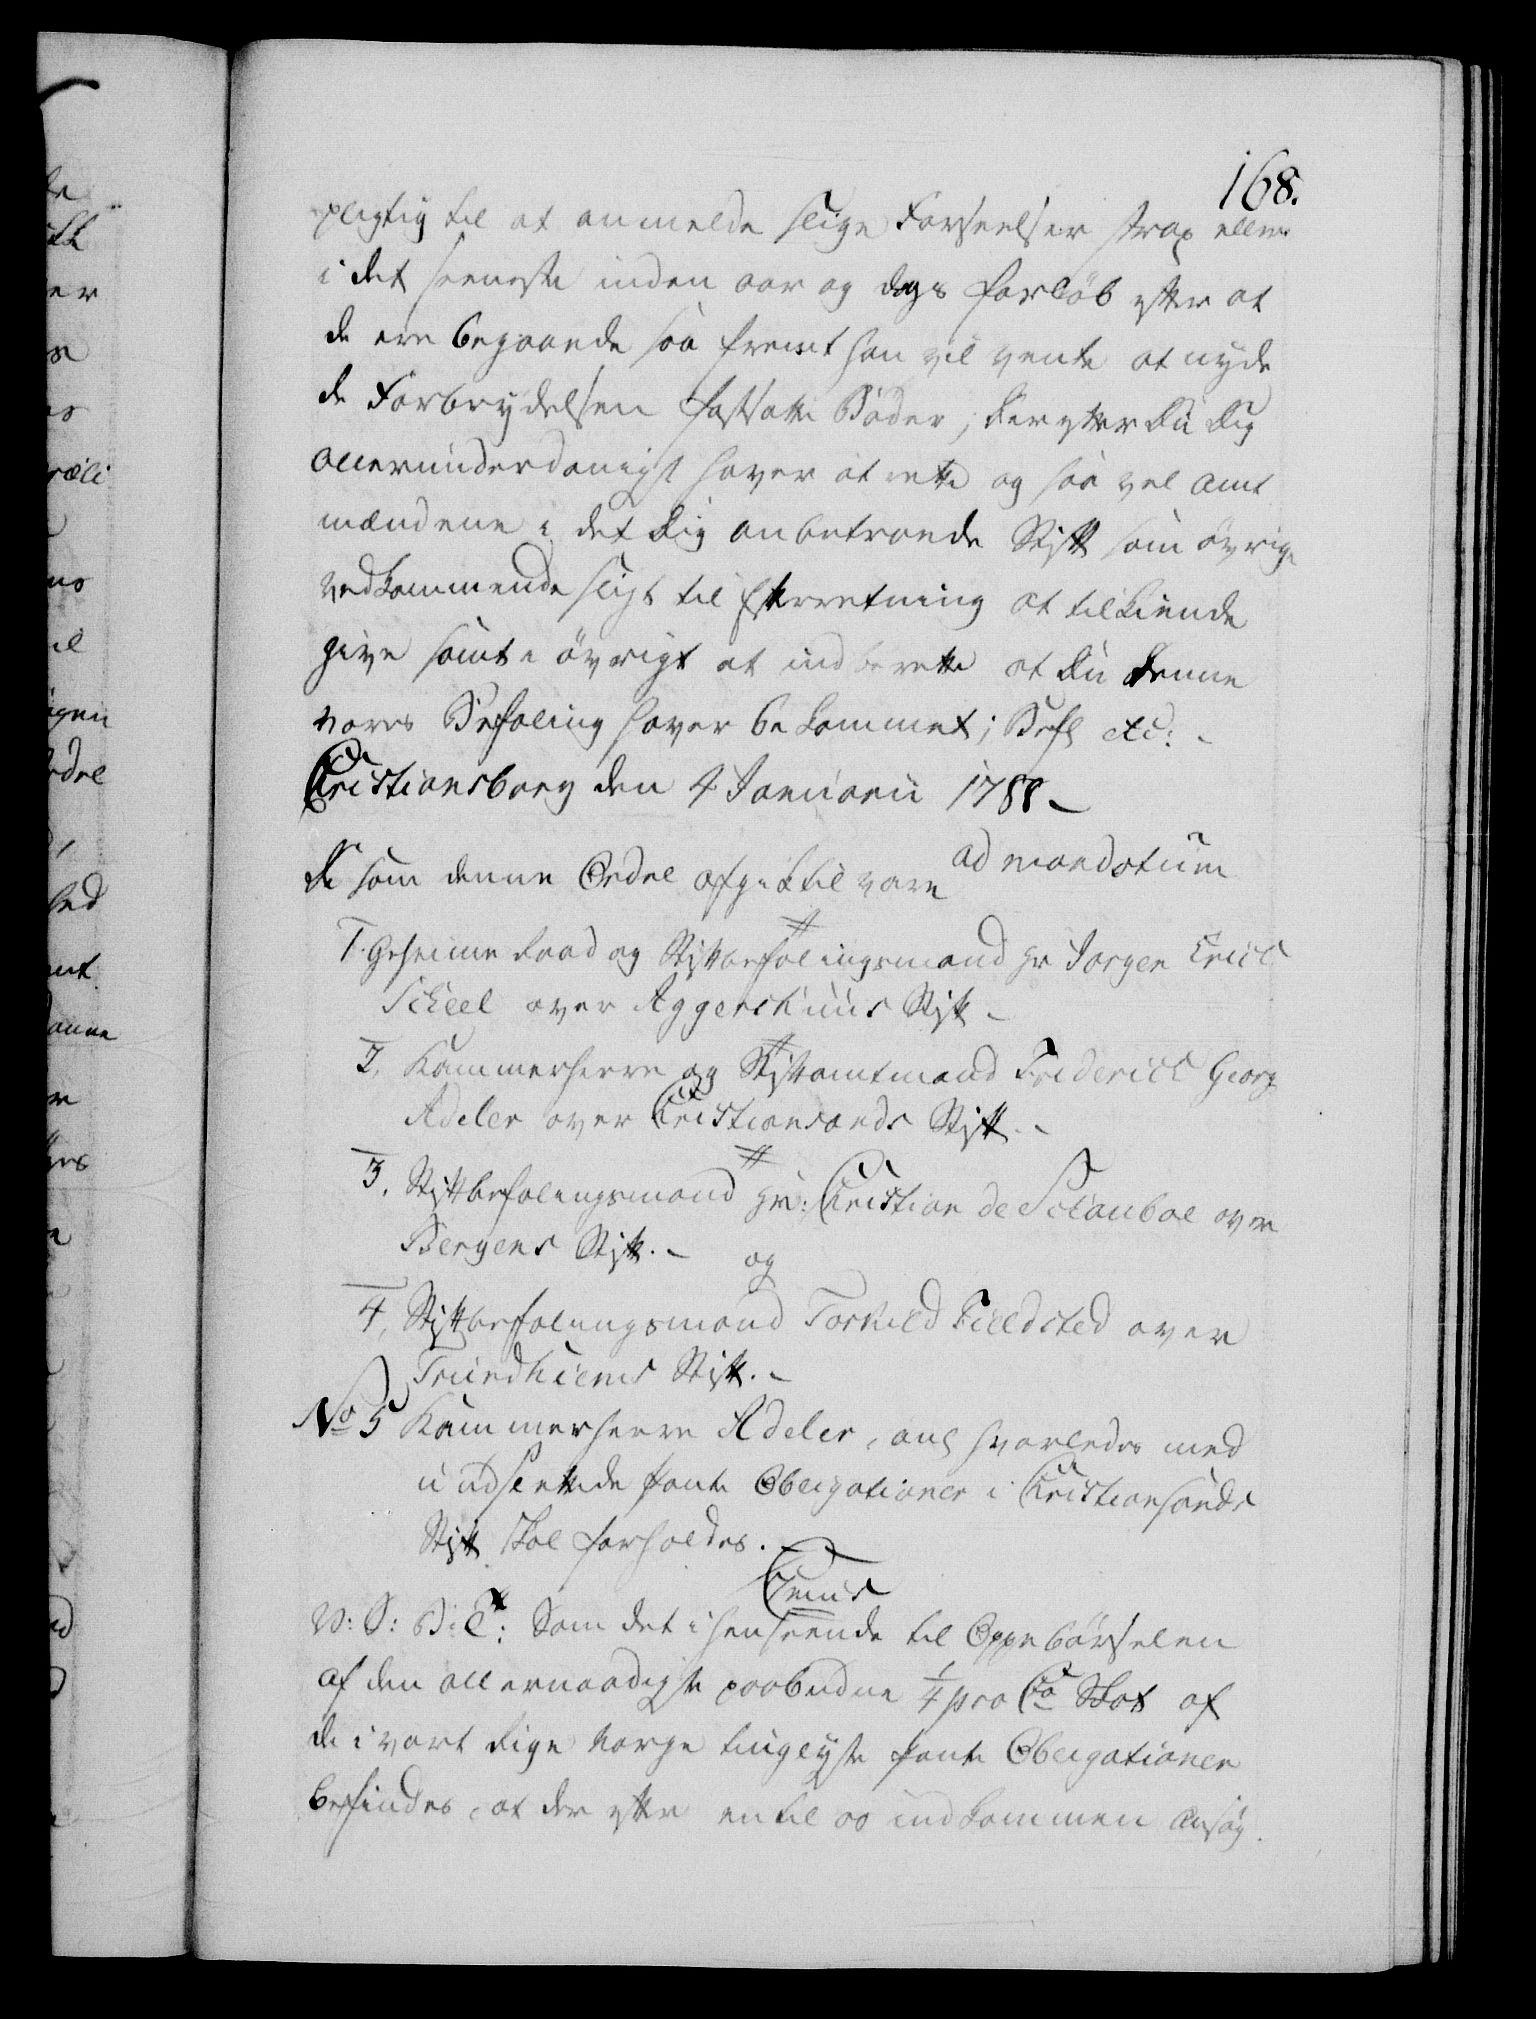 168.
pligtig til at anmelde slige Forseelser strax eller
i det seeneste inden aar og dags forløb efter at
de ere begaaede saa fremt han vil vente at nyde
de Forbrydelsen fastsatte Bøder; derefter du dig
allerunderdanigst haver at rette og saa vel Amt
mændene i det dig anbetroede Stift som øvrige
vedkommende sligt til Efterretning at tilkiende
give samt i øvrigt at indberette at du denne
vores Befaling haver bekommet; Befl etc: -
Christiansborg den 4 Januarii 1788 -
ad mandatum
De som denne Ordre afgik til vare
1. Geheime Raad og Stiftbefalingsmand Hr Jørgen Erich
Scheel over Aggershuus Stift -
2. Kammerherre og Stiftamtmand Friderich Georg
Adeler over Christiansands Stift. -
3. Stiftbefalingsmand Hr: Christian de Schouboe over
Bergens Stift. - og
4. Stiftbefalingsmand Torkild Fieldsted over
Trundhiems Stift. -
No 5 Kammerherre Adeler, ang hvorledes med
uudslettede Pante Obligationer i Christiansands
Stift skal forholdes.
C7mus
V: G: B: C: Som det i henseende til Oppebørselen
af den allernaadigste paabudne 1/4 pro Cto Skat af
de i vort Rige Norge tinglyste Pante Obligationer
befindes, at der efter en til os indkommen Ansøg.